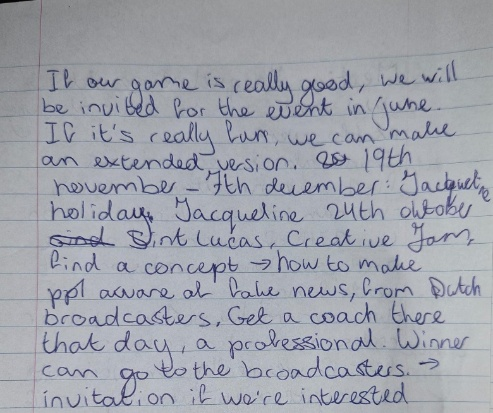 If our game is really good, we will
be invited for the event in june.
If it's really fun, we can make
an extended version. 19th
november - 7th december: Jacqueline
holiday, Jacqueline 24th oktober
Sint Lucas, Creative Jam,
find a concept → how to make
ppl aware of fake news, from Dutch
broadcasters, Get a coach there
that day, a professional. Winner
can go to the broadcasters. →
invitation if we're interested